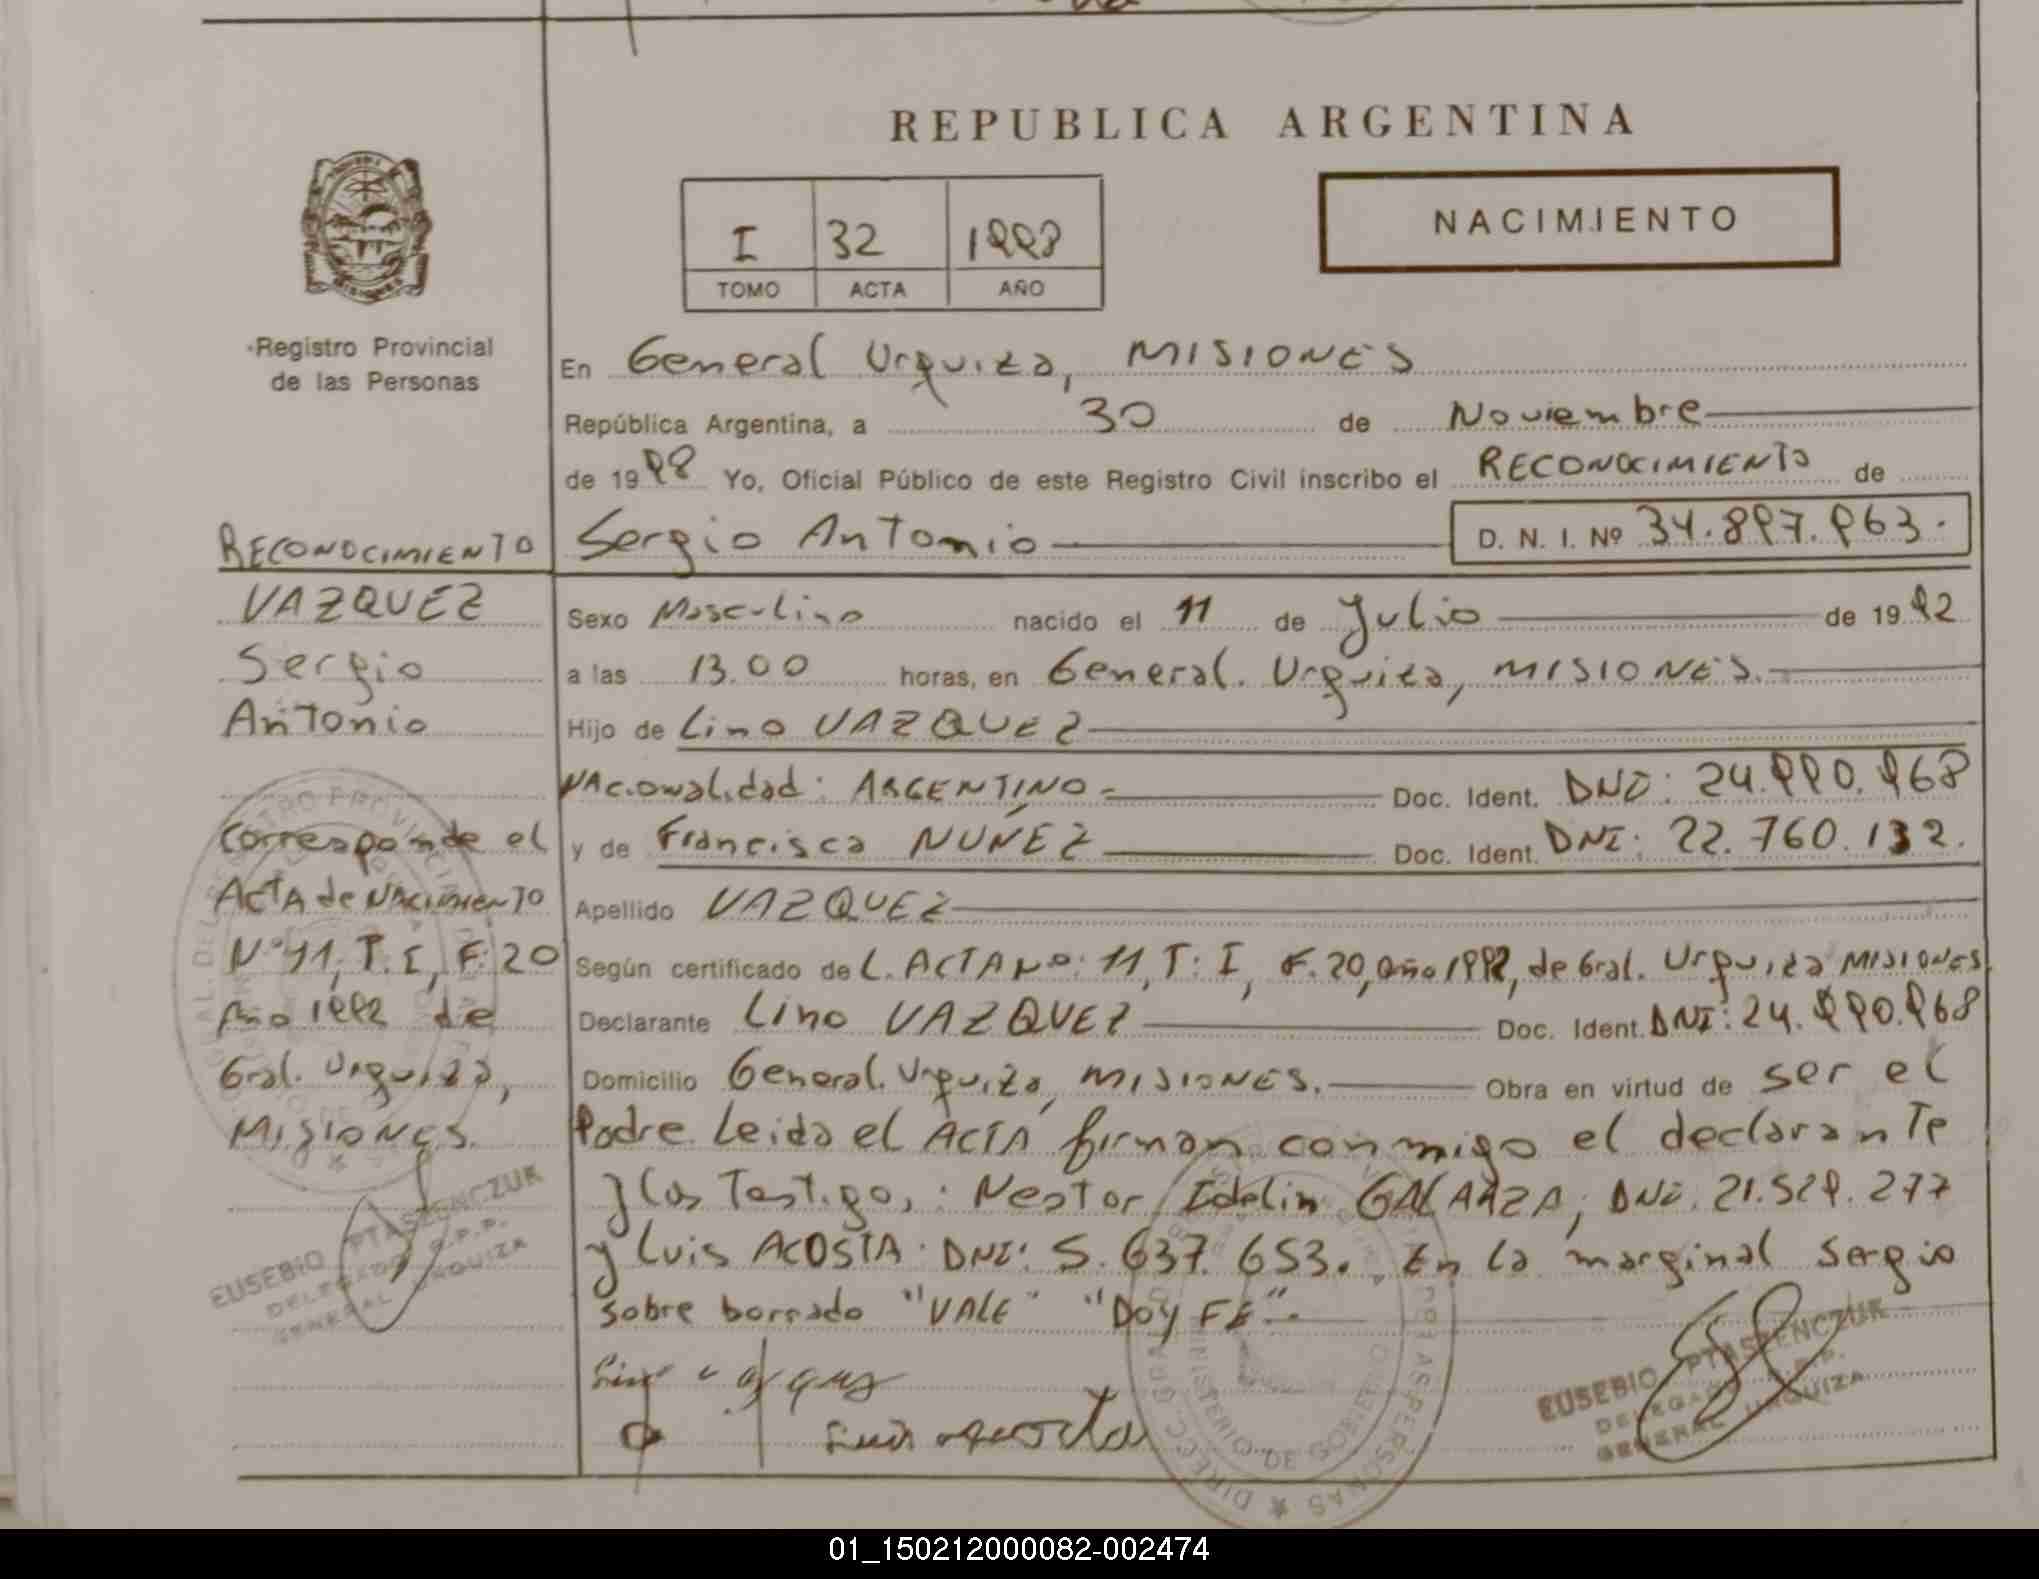 REPUBLICA ARGENTINA
NACIMIENTO
I 32 1998
TOMO ACTA AÑO
Registro Provincial
de las Personas
En General Urquiza, MISIONES
República Argentina, a 30 de Noviembre
de 1998 Yo, Oficial Público de este Registro Civil inscribo el RECONOCIMIENTO de
Sergio Antonio D. N. I. Nº 34.897.963.
RECONOCIMIENTO
VAZQUEZ
Sergio
Antonio
Corresponde el
ACTA de NACIMIENTO
Nº 11, T. I, F: 20
Año 1992 de
Gral. Urquiza,
MISIONES.
Sexo Masculino nacido el 11 de Julio de 1992
a las 13.00 horas, en General. Urquiza, MISIONES.
Hijo de Lino VAZQUEZ
NAcionalidad: ARGENTINO- Doc. Ident. DNI: 24.990.968
y de Francisca NUÑEZ Doc. Ident. DNI: 22.760.132.
Apellido VAZQUEZ
Según certificado de L. ACTA Nº: 11, T: I, F. 20, año 1992, de Gral. Urquiza MISIONES
Declarante Lino VAZQUEZ Doc. Ident. DNI: 24.990.968
Domicilio General. Urquiza, MISIONES. Obra en virtud de ser el
Padre. Leida el ACTA firman conmigo el declarante
y los Testigos: Nestor Idelin GALARZA, DNI. 21.529.277
y Luis ACOSTA. DNI: 5.637.653. En la marginal Sergio
sobre borrado "VALE" "DOY FE".-
EUSEBIO PTASZENCZUK
DELEGADO R.P.P.
GENERAL URQUIZA
EUSEBIO PTASZENCZUK
DELEGADO R.P.P.
GENERAL URQUIZA
MINISTERIO DE GOBIERNO
01_150212000082-002474